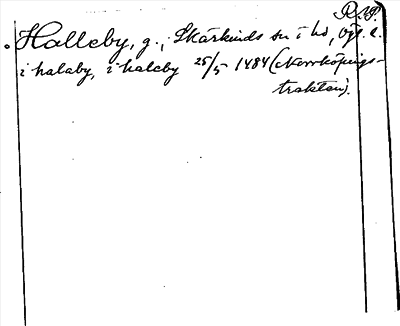 R.B.
Halleby, g., Skärkinds sn i hd, Ögl. l.
i halaby, i haleby 25/5 1484 (Norrköpings-
trakten).